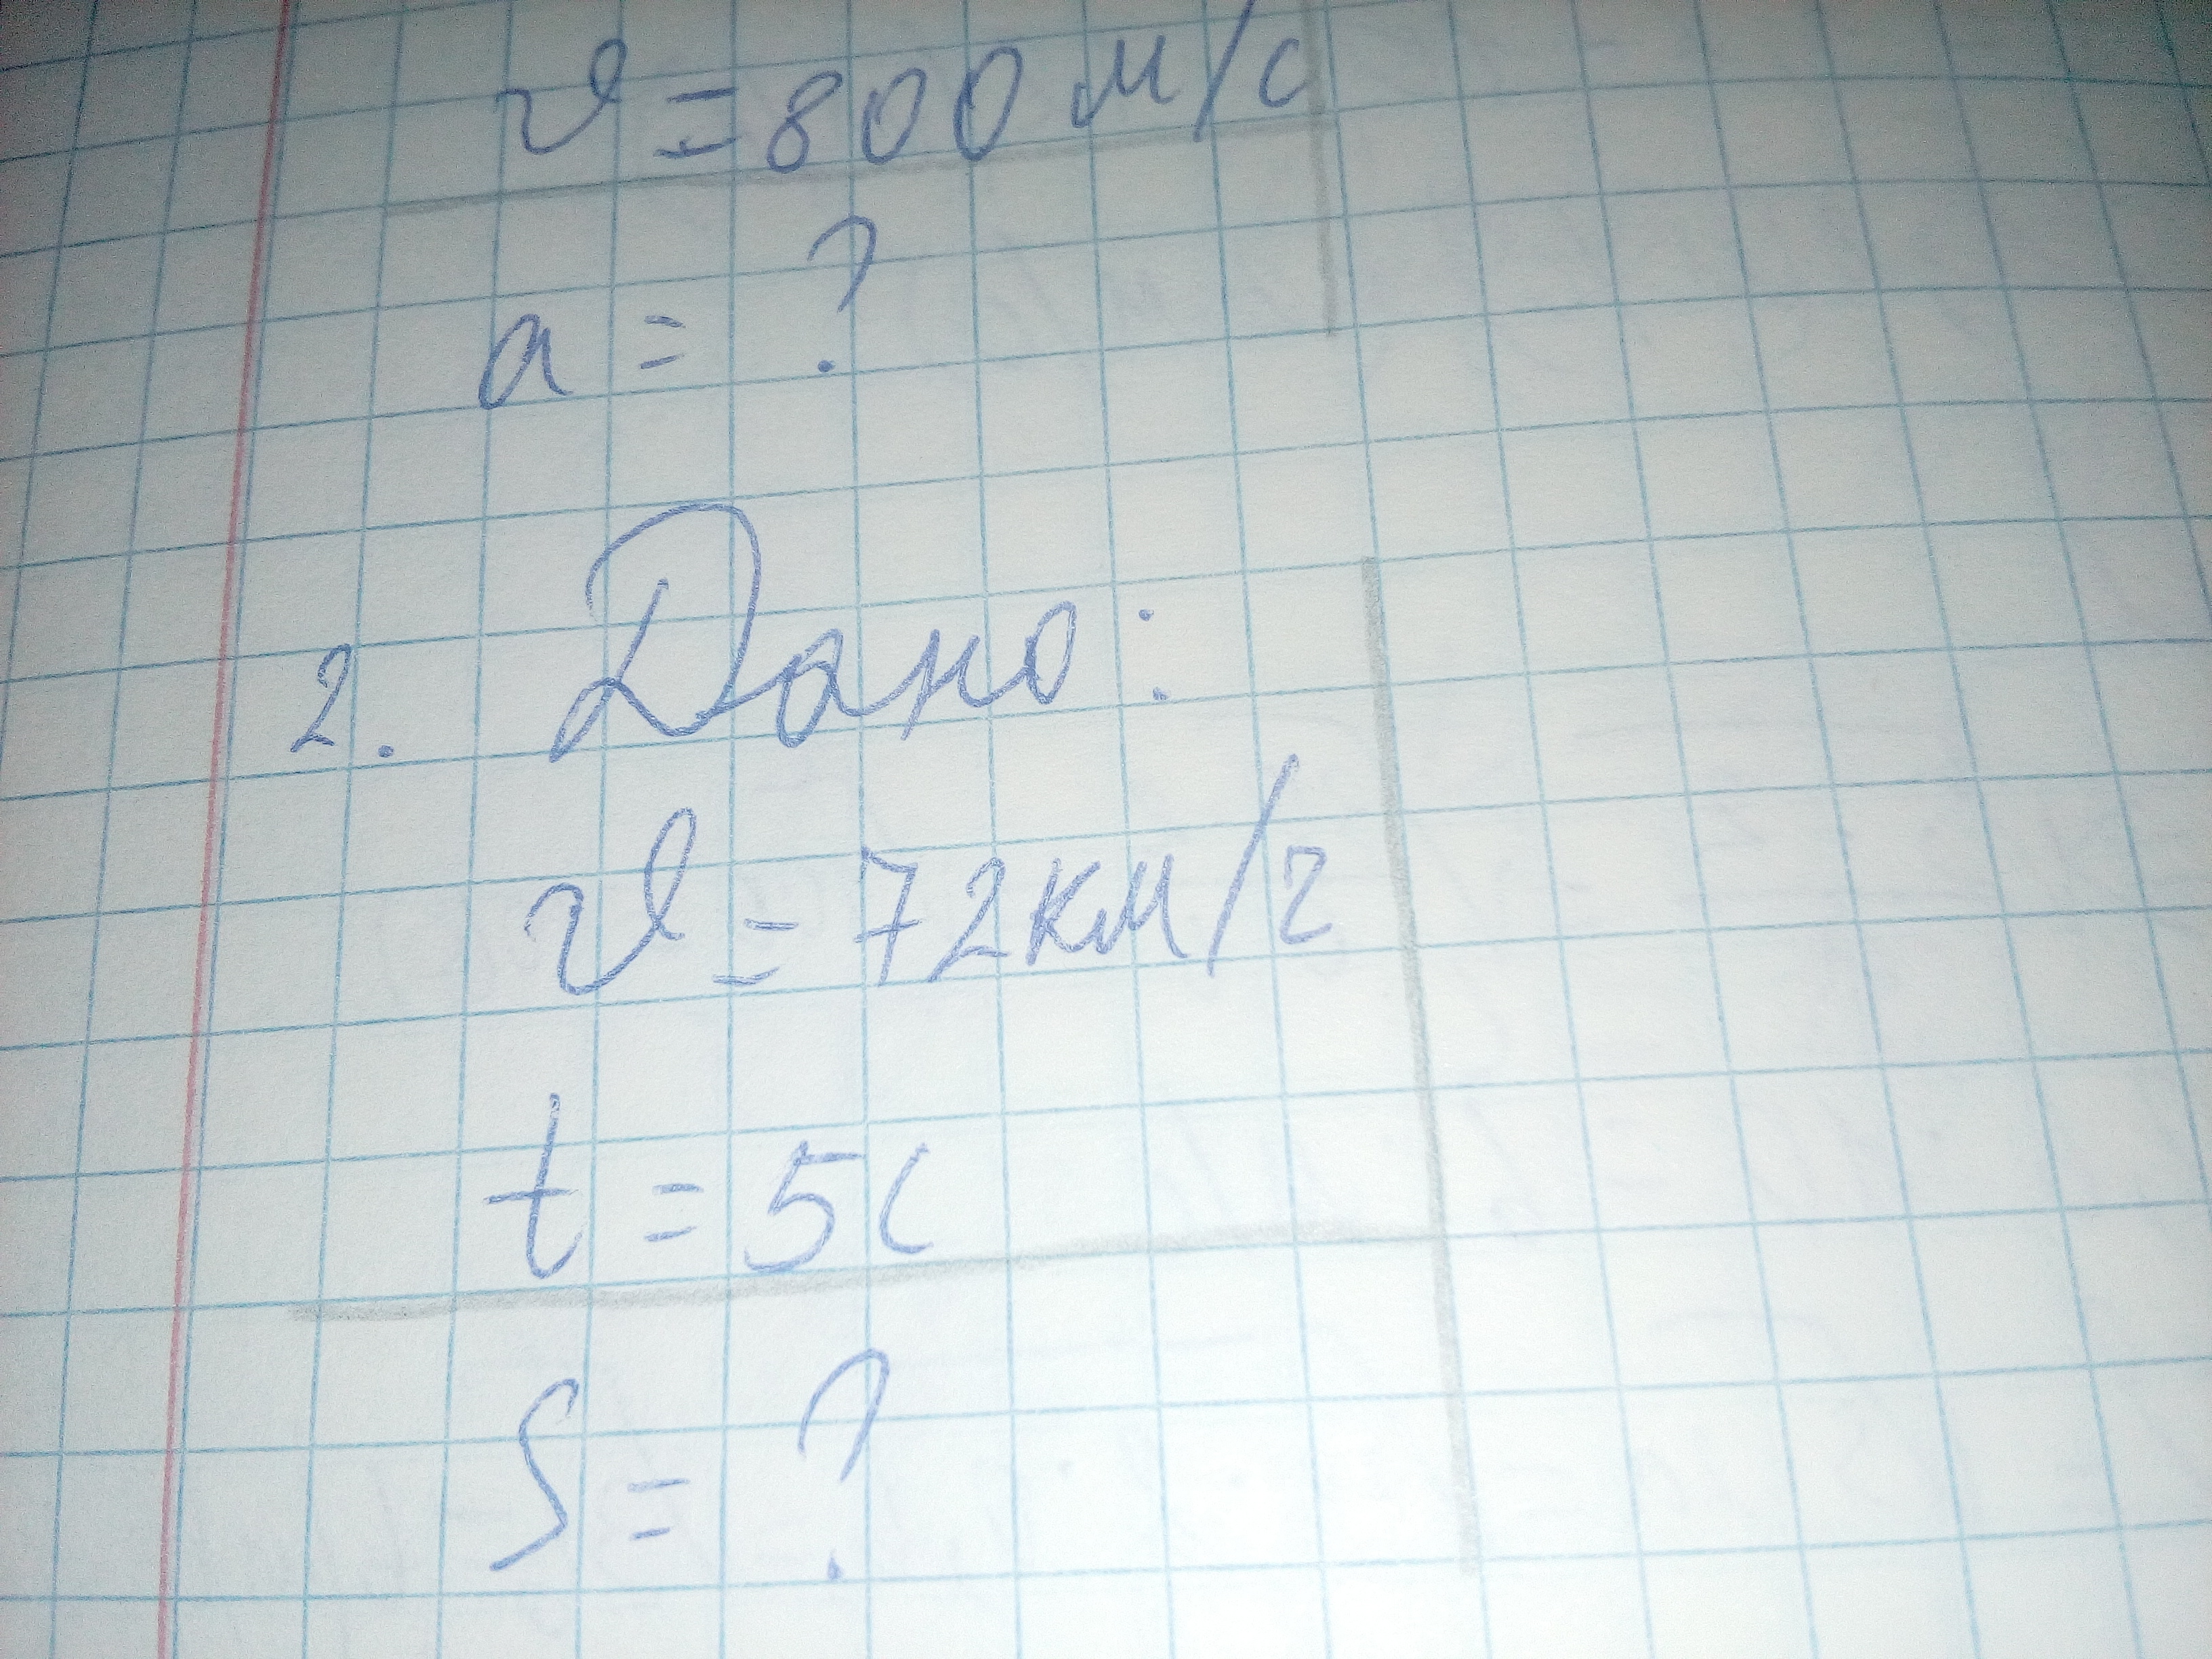 v = 800 м/с
a = ?
2. Дано:
v = 72 км/г
t = 5 с
S = ?